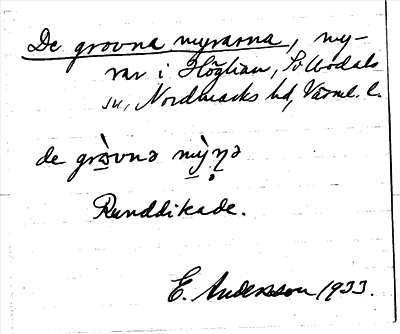 De grovna myrarna, my-
rar i Höglian, Sv. Bodals
sn, Nordmarks hd, Värml. l.
de grò̱vnə mỳṇə
Runddikade.
E. Andersson 1933.